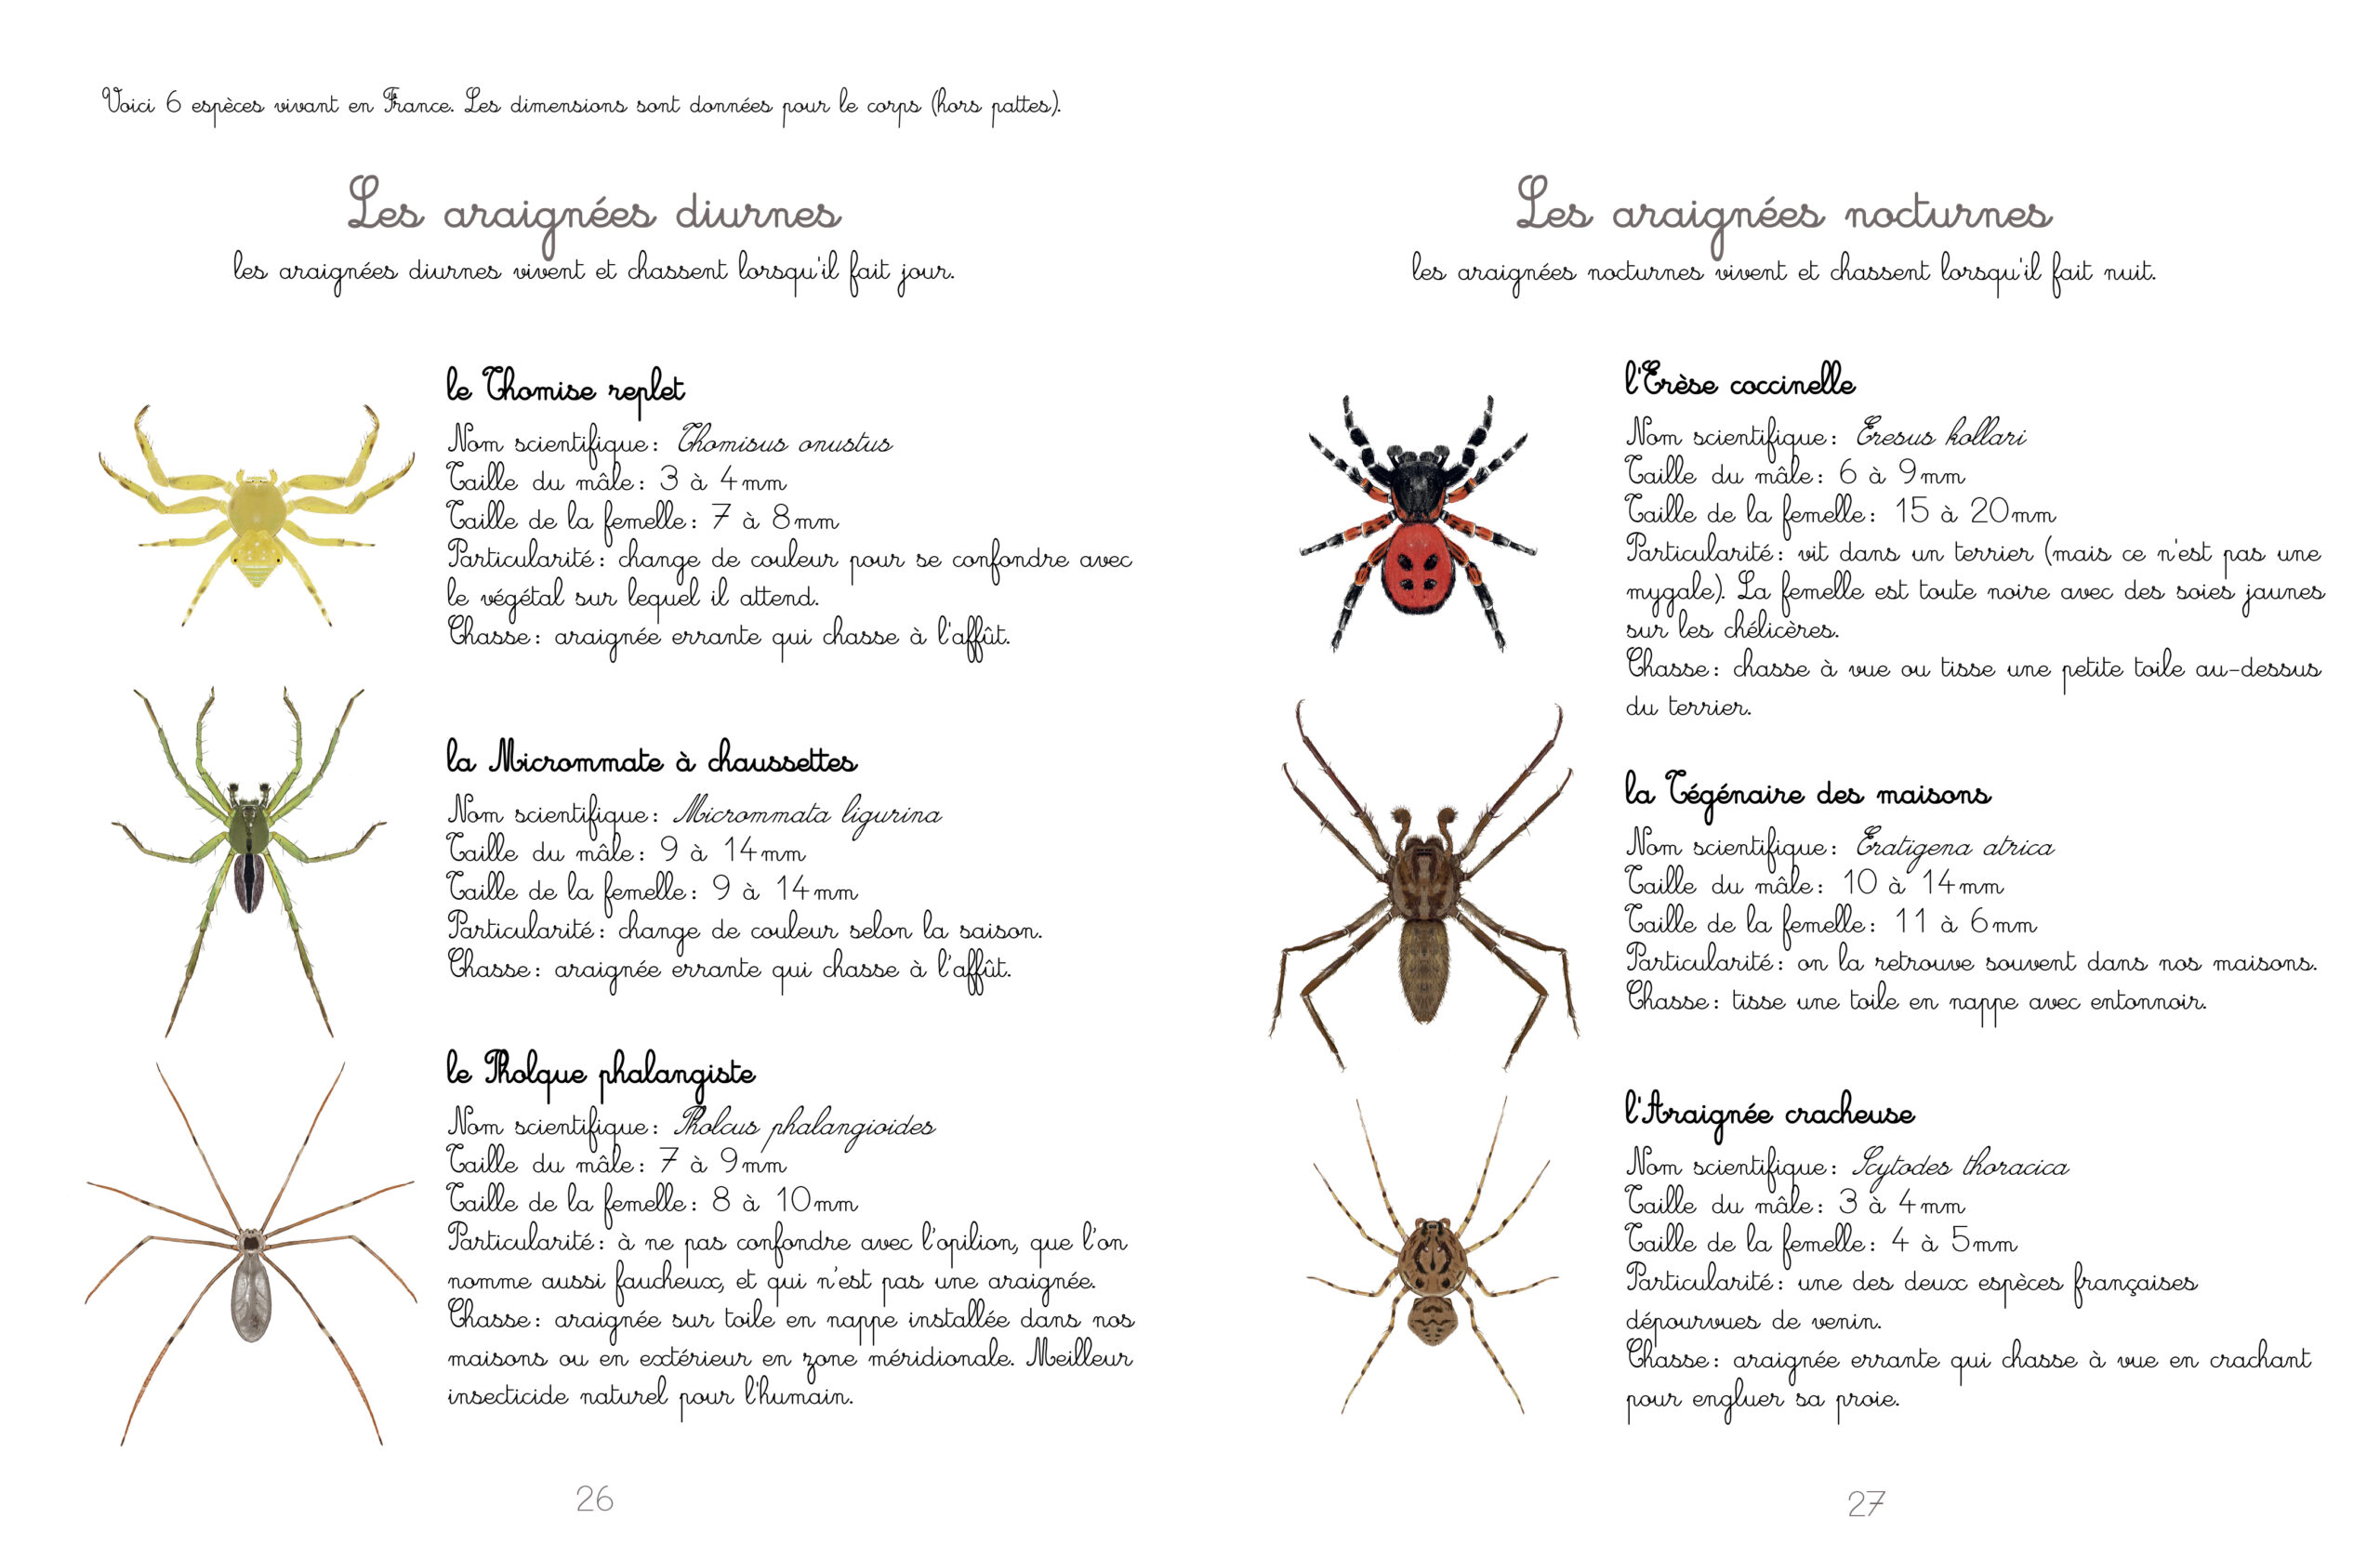 Voici 6 espèces vivant en France. Les dimensions sont données pour le corps (hors pattes).
Les araignées diurnes
les araignées diurnes vivent et chassent lorsqu'il fait jour.
le Thomise replet
Nom scientifique : Thomisus onustus
Taille du mâle : 3 à 4mm
Taille de la femelle : 7 à 8mm
Particularité : change de couleur pour se confondre avec
le végétal sur lequel il attend.
Chasse : araignée errante qui chasse à l'affût.
la Micrommate à chaussettes
Nom scientifique : Micrommata ligurina
Taille du mâle : 9 à 14mm
Taille de la femelle : 9 à 14mm
Particularité : change de couleur selon la saison.
Chasse : araignée errante qui chasse à l'affût.
le Pholque phalangiste
Nom scientifique : Pholcus phalangioides
Taille du mâle : 7 à 9mm
Taille de la femelle : 8 à 10mm
Particularité : à ne pas confondre avec l'opilion, que l'on
nomme aussi faucheux, et qui n'est pas une araignée.
Chasse : araignée sur toile en nappe installée dans nos
maisons ou en extérieur en zone méridionale. Meilleur
insecticide naturel pour l'humain.
26
Les araignées nocturnes
les araignées nocturnes vivent et chassent lorsqu'il fait nuit.
l'Erèse coccinelle
Nom scientifique : Eresus kollari
Taille du mâle : 6 à 9mm
Taille de la femelle : 15 à 20mm
Particularité : vit dans un terrier (mais ce n'est pas une
mygale). La femelle est toute noire avec des soies jaunes
sur les chélicères.
Chasse : chasse à vue ou tisse une petite toile au-dessus
du terrier.
la Tégénaire des maisons
Nom scientifique : Eratigena atrica
Taille du mâle : 10 à 14mm
Taille de la femelle : 11 à 6mm
Particularité : on la retrouve souvent dans nos maisons.
Chasse : tisse une toile en nappe avec entonnoir.
l'Araignée cracheuse
Nom scientifique : Scytodes thoracica
Taille du mâle : 3 à 4mm
Taille de la femelle : 4 à 5mm
Particularité : une des deux espèces françaises
dépourvues de venin.
Chasse : araignée errante qui chasse à vue en crachant
pour engluer sa proie.
27